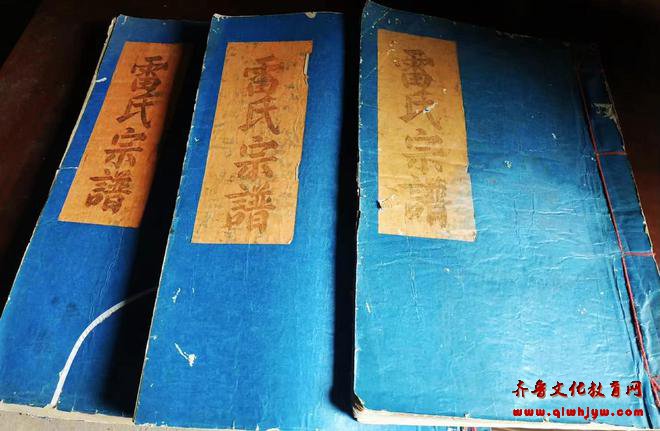 雷氏宗譜
雷氏宗譜
雷氏宗譜
齐鲁文化教育网
www.qlwhjyw.com